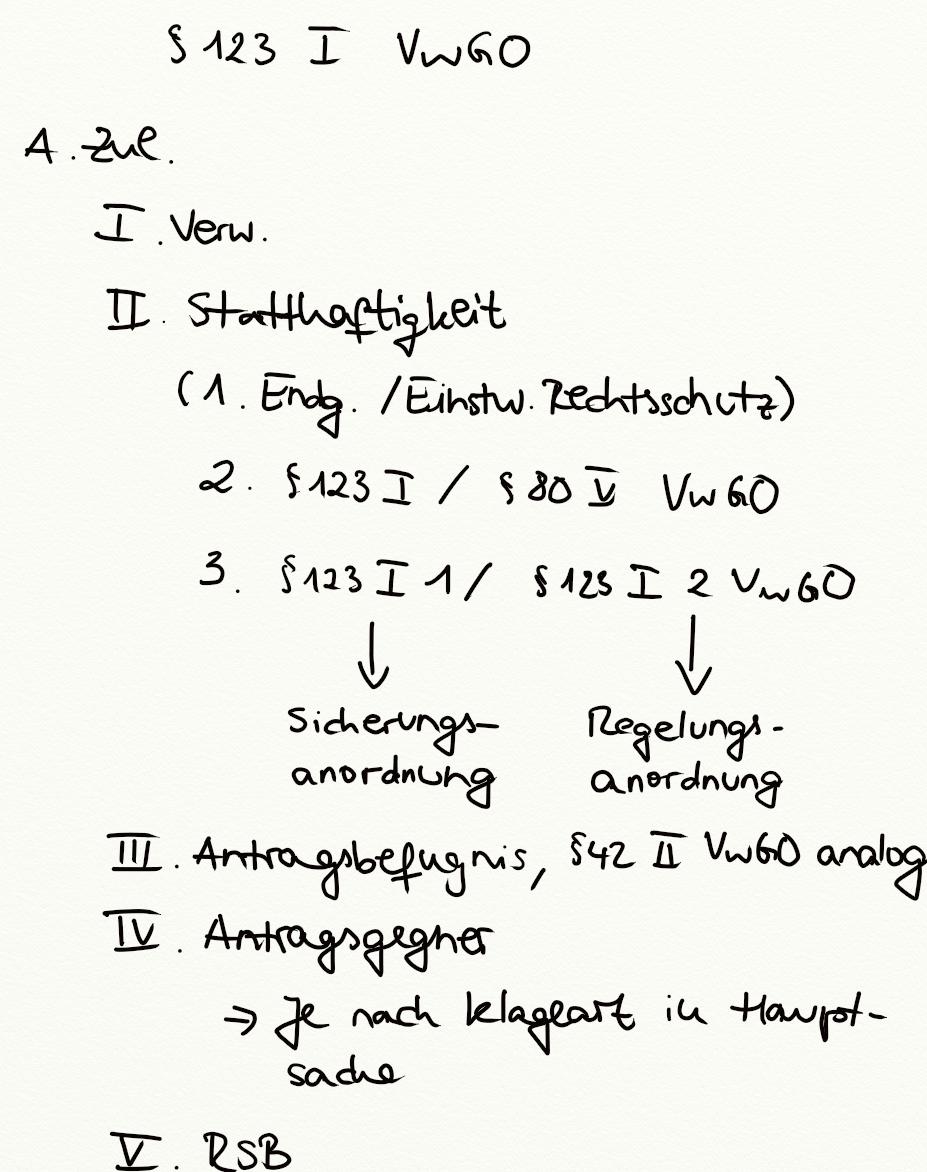 § 123 I VwGO
A. Zul.
I. Verw.
II. Statthaftigkeit
(1. Endg. /Einstw. Rechtsschutz)
2. § 123 I / § 80 V VwGO
3. § 123 I 1 / § 123 I 2 VwGO
↓ ↓
Sicherungs- Regelungs-
anordnung anordnung
III. Antragsbefugnis, § 42 II VwGO analog
IV. Antragsgegner
→ Je nach Klageart in Haupt-
sache
V. RSB